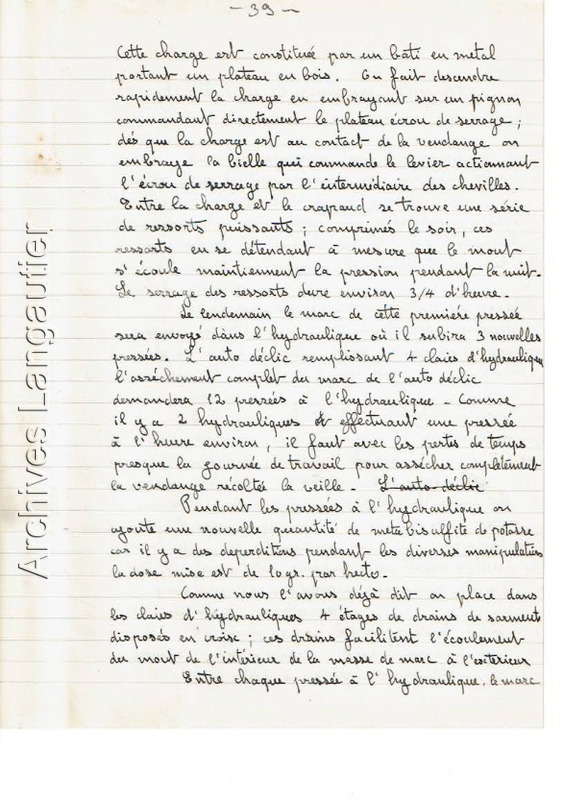 - 39 -
Cette charge est constituée par un bâti en métal
portant un plateau en bois. On fait descendre
rapidement la charge en embrayant sur un pignon
commandant directement le plateau écrou de serrage ;
dés que la charge est au contact de la vendange on
embraye la bielle qui commande le levier actionnant
l'écrou de serrage par l'intermidiaire des chevilles.
Entre la charge et le crapaud se trouve une série
de ressorts puissants ; comprimés le soir, ces
ressorts en se détendant à mesure que le mout
s'écoule maintiennent la pression pendant la nuit.
Le serrage des ressorts dure environ 3/4 d'heure.
Le lendemain le marc de cette premiére pressée
sera envoyé dans l'hydraulique où il subira 3 nouvelles
pressées. L'auto déclic remplissant 4 claies d'hydraulique
l'asséchement complet du marc de l'auto déclic
demandera 12 pressées à l'hydraulique - Comme
il y a 2 hydrauliques et effectuant une pressée
à l'heure environ, il faut avec les pertes de temps
presque la journée de travail pour assécher complètement
la vendange récoltée la veille - L'auto déclic
Pendant les pressées à l'hydraulique on
ajoute une nouvelle quantité de metabisulfite de potasse
car il y a des deperditions pendant les diverses manipulations
la dose mise est de 10 gr. par hecto.
Comme nous l'avons déjà dit on place dans
les claies d'hydrauliques 4 étages de drains de sarments
disposés en croix ; ces drains facilitent l'écoulement
du mout de l'intérieur de la masse de marc à l'extérieur
Entre chaque pressée à l'hydraulique, le marc
Archives Langautier